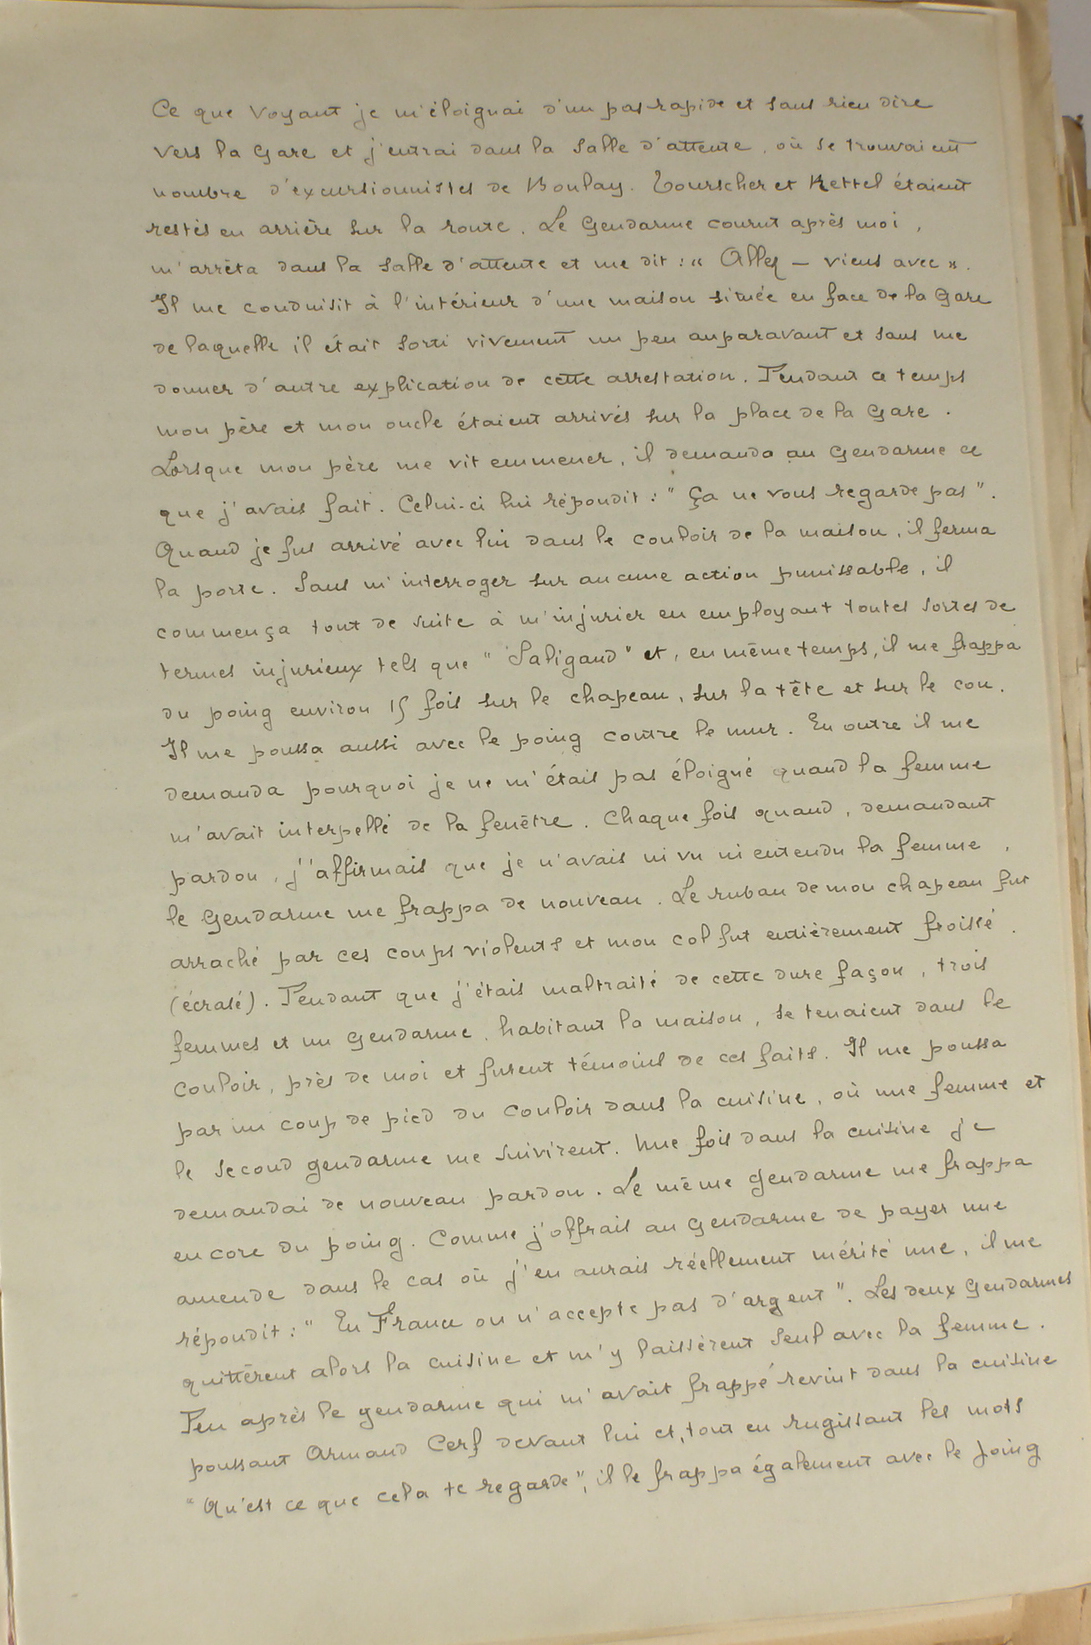 Ce que voyant je m'éloignai d'un pas rapide et sans rien dire
vers la gare et j'entrai dans la salle d'attente, où se trouvaient
nombre d'excursionnistes de Boulay. Tourscher et Kettel étaient
restés en arrière sur la route. Le Gendarme courut après moi,
m'arrêta dans la salle d'attente et me dit : « Allez – viens avec ».
Il me conduisit à l'intérieur d'une maison située en face de la gare
de laquelle il était sorti vivement un peu auparavant et sans me
donner d'autre explication de cette arrestation. Pendant ce temps
mon père et mon oncle étaient arrivés sur la place de la gare.
Lorsque mon père me vit emmener, il demanda au gendarme ce
que j'avais fait. Celui-ci lui répondit : " Ça ne vous regarde pas ".
Quand je fus arrivé avec lui dans le couloir de la maison, il ferma
la porte. Sans m'interroger sur aucune action punissable, il
commença tout de suite à m'injurier en employant toutes sortes de
termes injurieux tels que " Saligaud " et, en même temps, il me frappa
du poing environ 15 fois sur le chapeau, sur la tête et sur le cou.
Il me poussa aussi avec le poing contre le mur. En outre il me
demanda pourquoi je ne m'étais pas éloigné quand la femme
m'avait interpellé de la fenêtre. Chaque fois quand, demandant
pardon, j'affirmais que je n'avais ni vu ni entendu la femme,
le gendarme me frappa de nouveau. Le ruban de mon chapeau fut
arraché par ces coups violents et mon col fut entièrement froissé.
(écrasé). Pendant que j'étais maltraité de cette dure façon, trois
femmes et un gendarme, habitant la maison, se tenaient dans le
couloir, près de moi et furent témoins de ces faits. Il me poussa
par un coup de pied du couloir dans la cuisine, où une femme et
le second gendarme me suivirent. Une fois dans la cuisine je
demandai de nouveau pardon. Le même gendarme me frappa
encore du poing. Comme j'offrais au gendarme de payer une
amende dans le cas où j'en aurais réellement mérité une, il me
répondit : " En France on n'accepte pas d'argent ". Les deux gendarmes
quittèrent alors la cuisine et m'y laissèrent seul avec la femme.
Peu après le gendarme qui m'avait frappé revint dans la cuisine
poussant Armand Cerf devant lui et, tout en rugissant les mots
" Qu'est ce que cela te regarde ", il le frappa également avec le poing